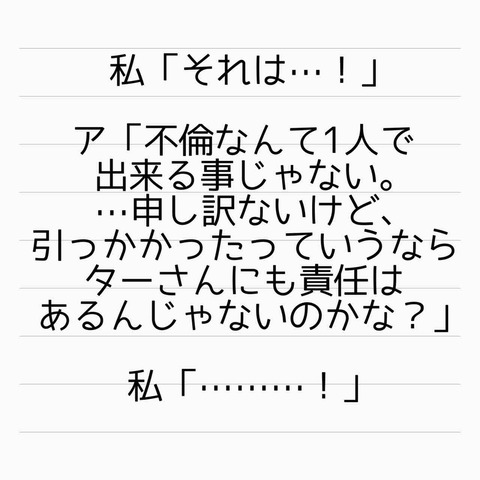 私「それは…！」
ア「不倫なんて1人で
出来る事じゃない。
…申し訳ないけど、
引っかかったっていうなら
ターさんにも責任は
あるんじゃないのかな？」
私「………！」